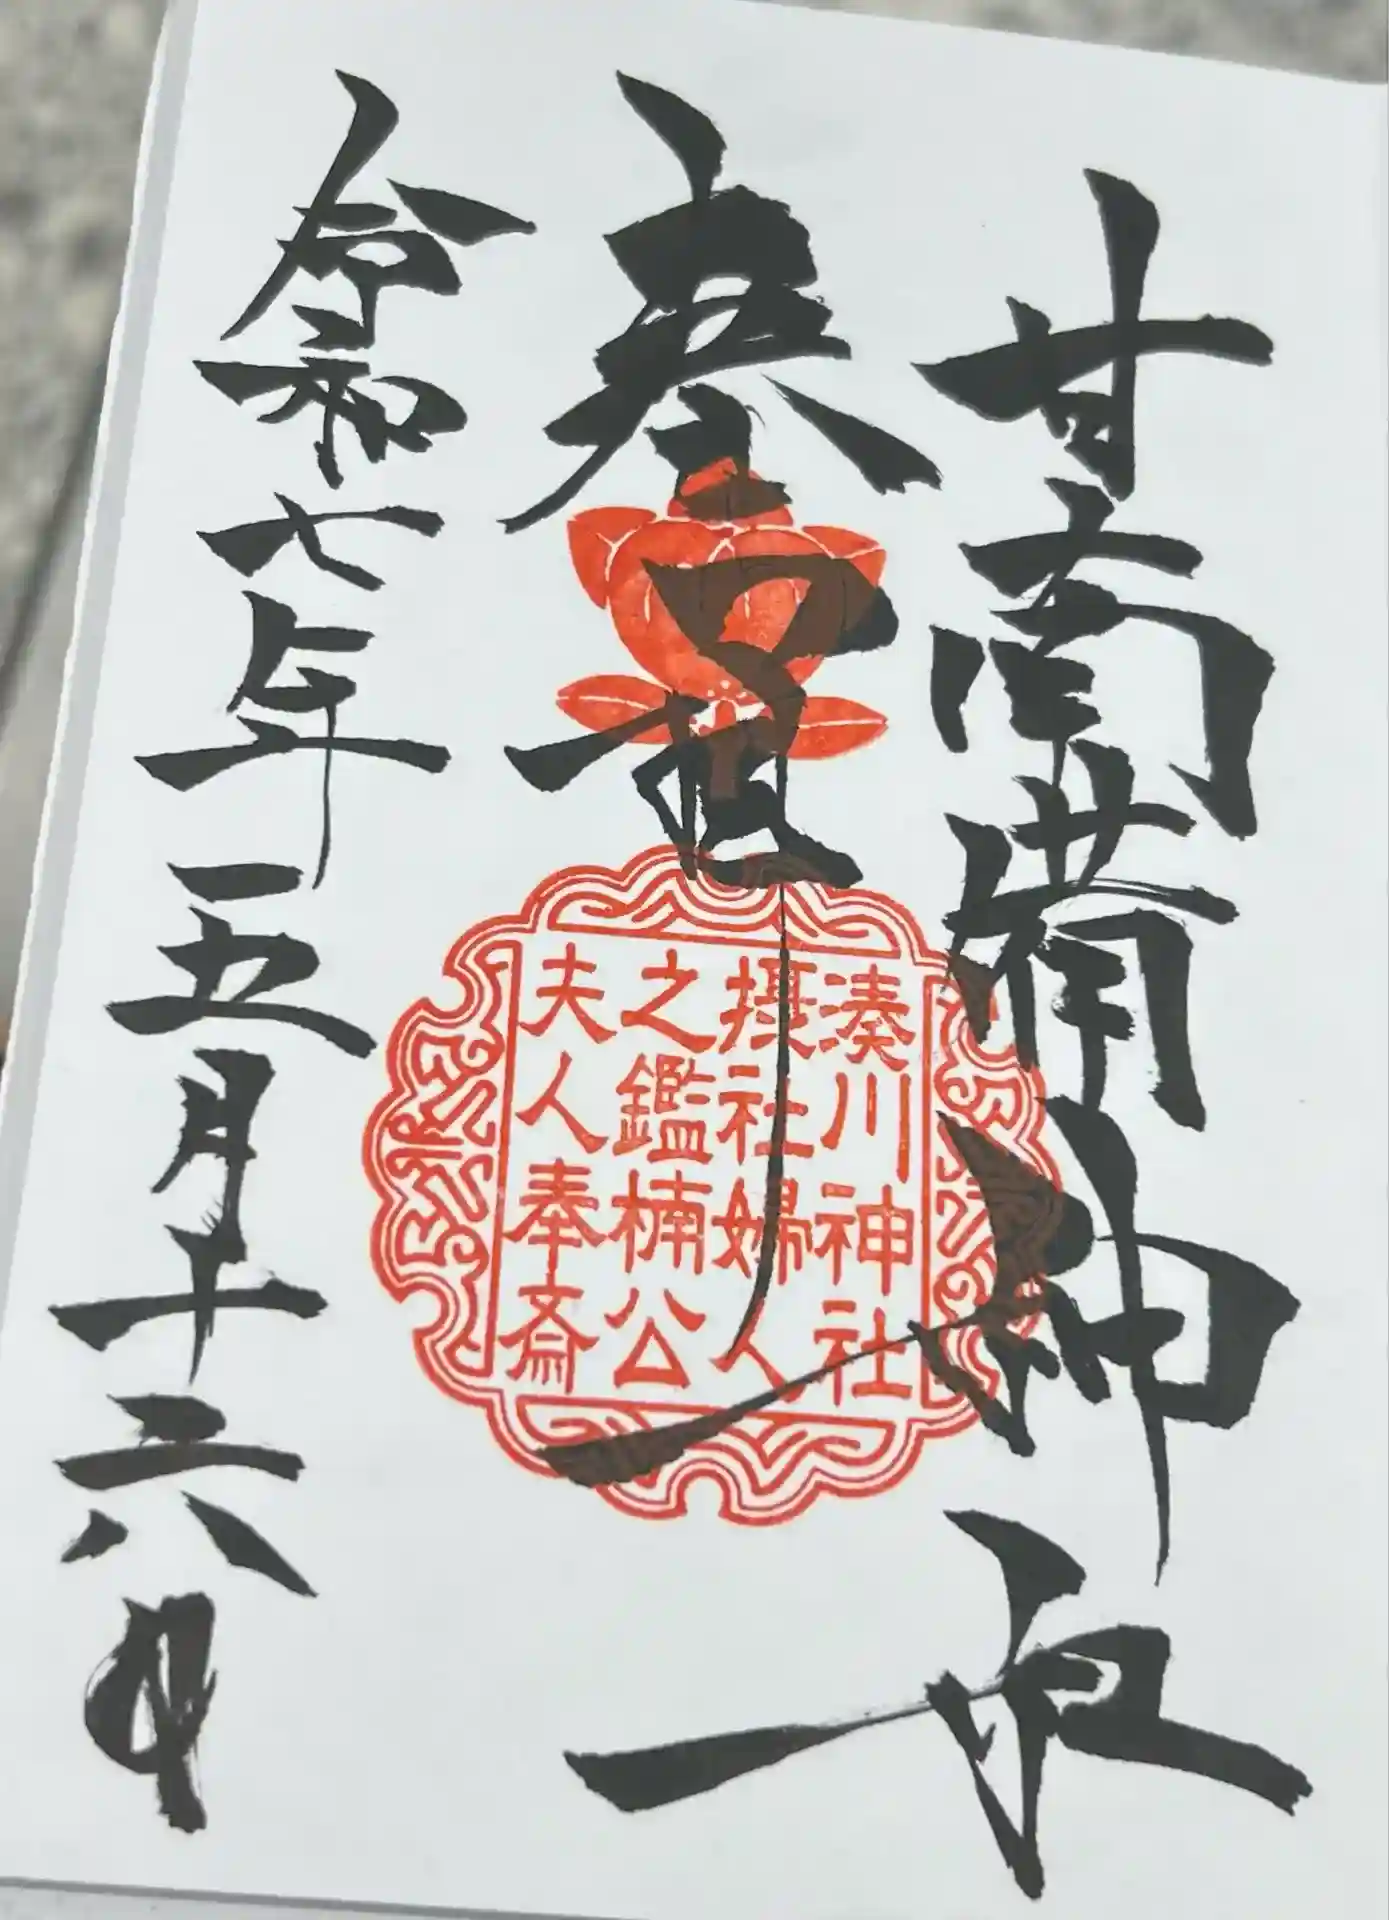 甘南備神社
湊川神社
摂社婦人
之鑑楠公
夫人奉斎
令和七年五月十六日